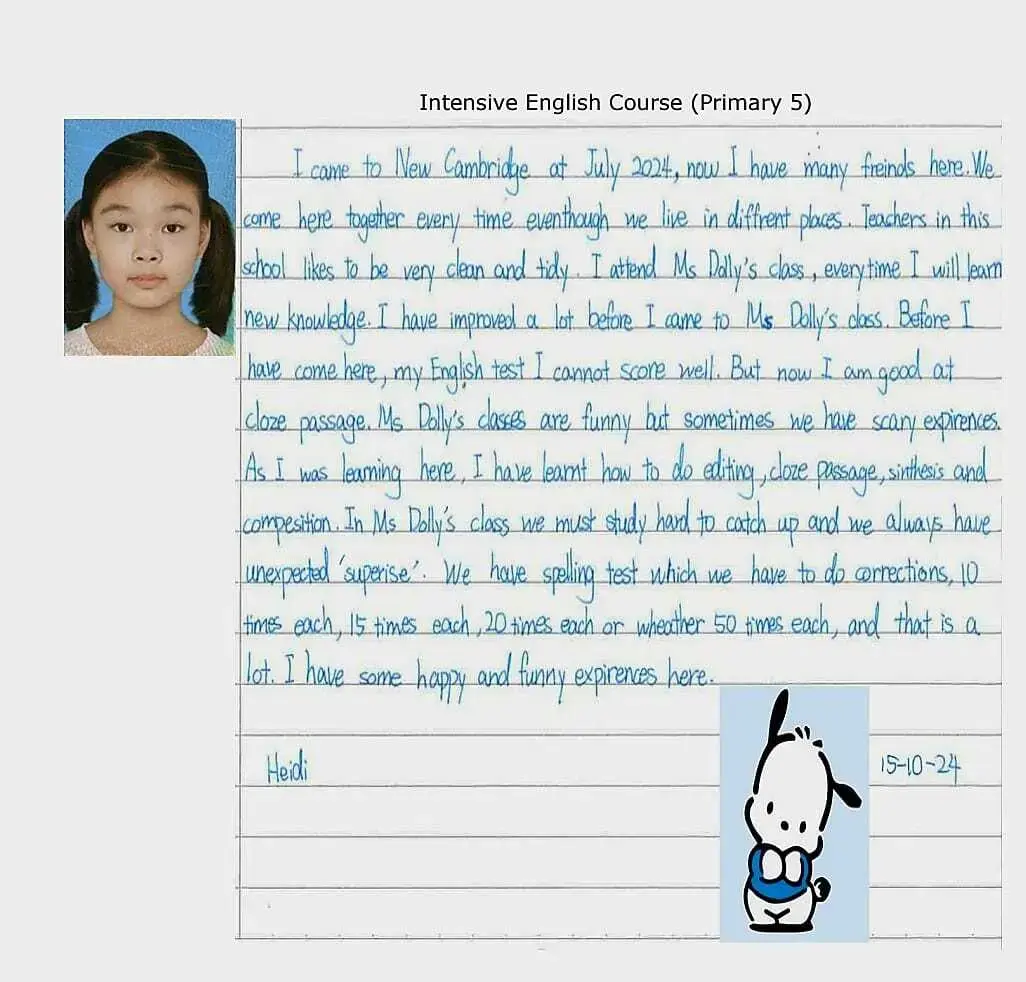 Intensive English Course (Primary 5)
I came to New Cambridge at July 2024, now I have many freinds here. We
come here together every time eventhough we live in diffrent places. Teachers in this
school likes to be very clean and tidy. I attend Ms Dolly's class, everytime I will learn
new knowledge. I have improved a lot before I came to Ms Dolly's class. Before I
have come here, my English test I cannot score well. But now I am good at
cloze passage. Ms Dolly's classes are funny but sometimes we have scary expirences.
As I was learning here, I have learnt how to do editing, cloze passage, sinthesis and
compesition. In Ms Dolly's class we must study hard to catch up and we always have
unexpected 'superise'. We have spelling test which we have to do corrections, 10
times each, 15 times each, 20 times each or wheather 50 times each, and that is a
lot. I have some happy and funny expirences here.
Heidi
15-10-24